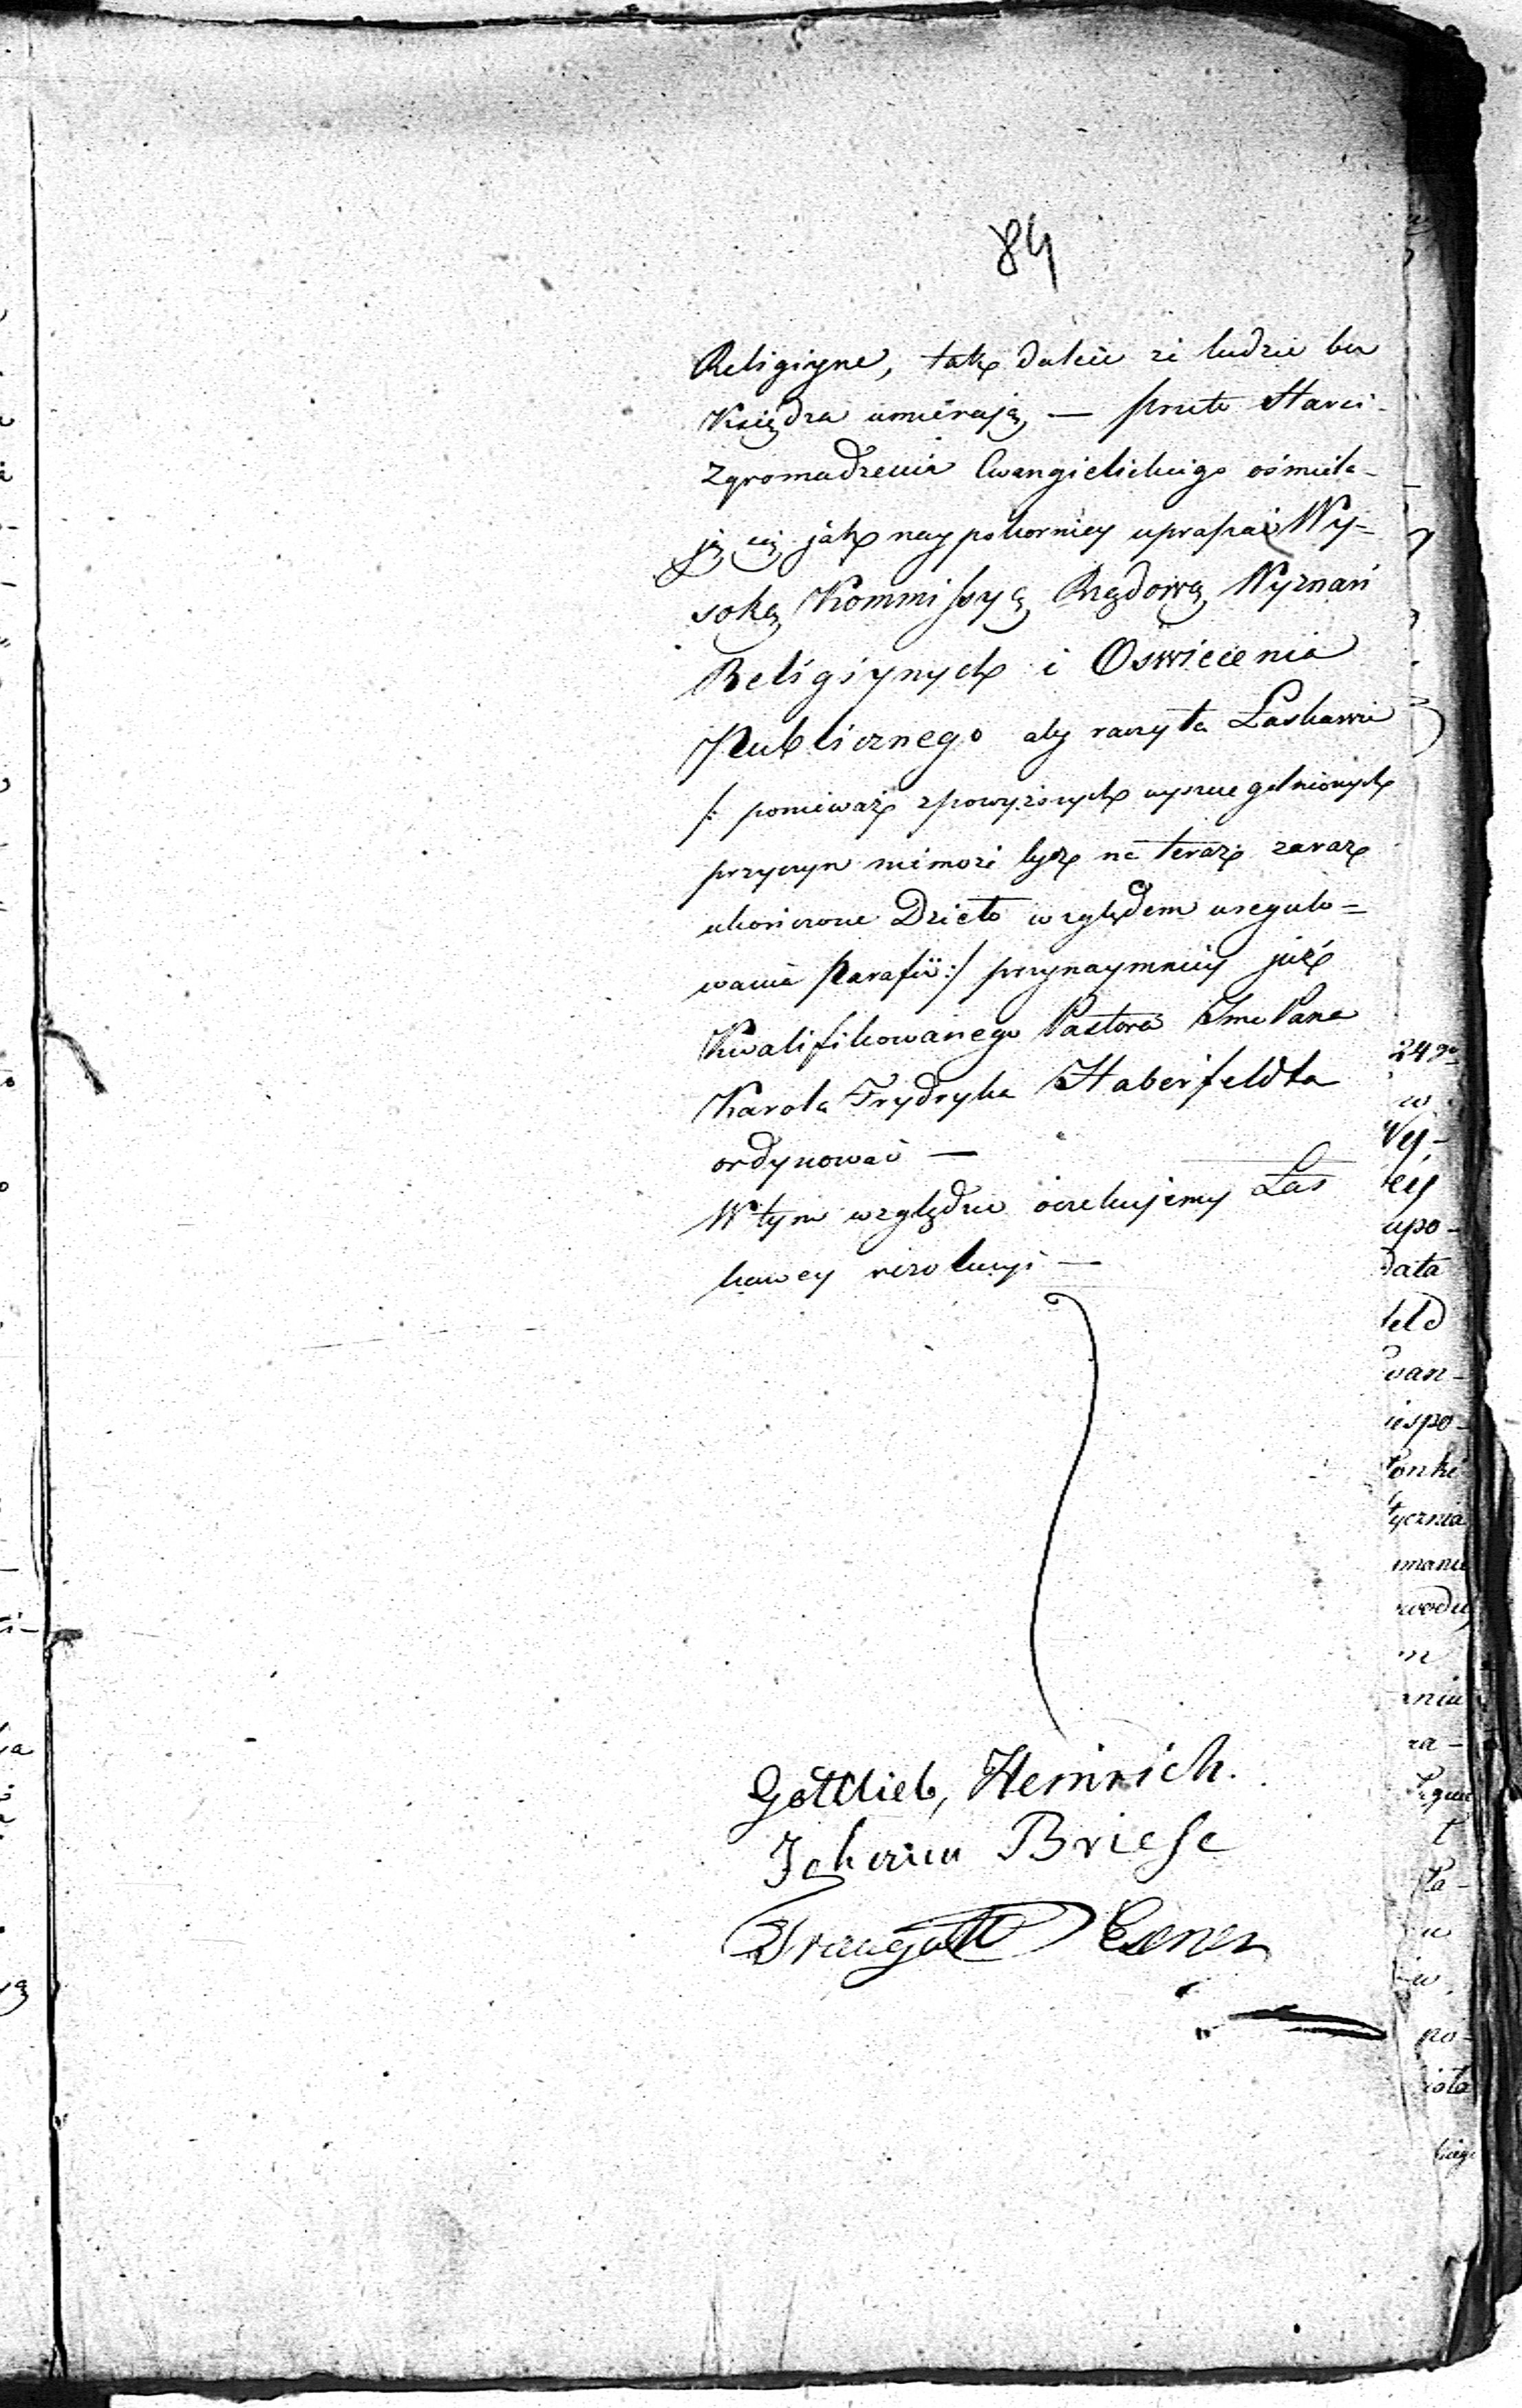 84
Religiyne, tak dalece że ludzie bez
Księdza umierają — przeto Starsi
Zgromadzenia Ewangielickiego ośmiela-
ją się jak naypokorniey upraszać Wy-
soką Kommissyą Rządową Wyznań
Religiynych i Oswiecenia
Publicznego aby raczyła Łaskawie
/: ponieważ z powyższych wyszczegulnionych
przyczyn niemoże bydź na teraz zaraz
ukończone Dzieło względem uregulo=
wania Parafii :/ przynaymniey już
Kwalifikowanego Pastora Jmc Pana
Karola Frydryka Haberfeldta
ordynować —
W tym względzie oczekujemy Łas
kawey rezolucyi —
Gottlieb, Heinrich.
Johann Briese
Traugott